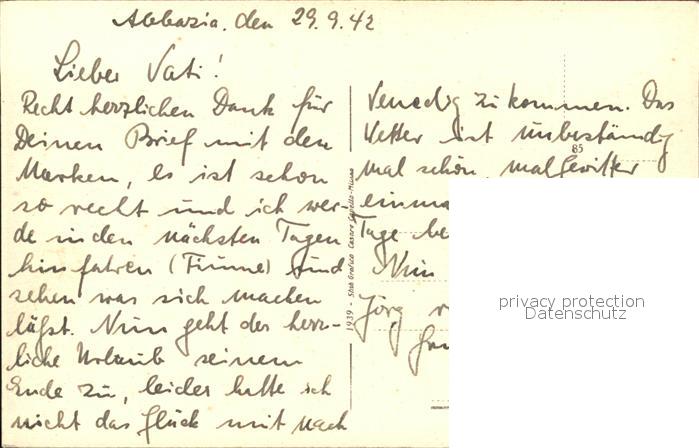 Abbazia. den 29.9.42
Lieber Vati!
Recht herzlichen Dank für
Deinen Brief mit den
Marken, es ist schon
so recht und ich wer-
de in den nächsten Tagen
hinfahren (Fiume) und
sehen was sich machen
läßt. Nun geht der herz-
liche Urlaub seinem
Ende zu, leider hatte ich
nicht das Glück mit nach
Venedig zu kommen. Das
Wetter ist unbeständig
mal schön, mal Gewitter
einma
Tage be
Nun
Jörg
85
1939 - Stab. Grafico Cesare Capello - Milano
privacy protection
Datenschutz